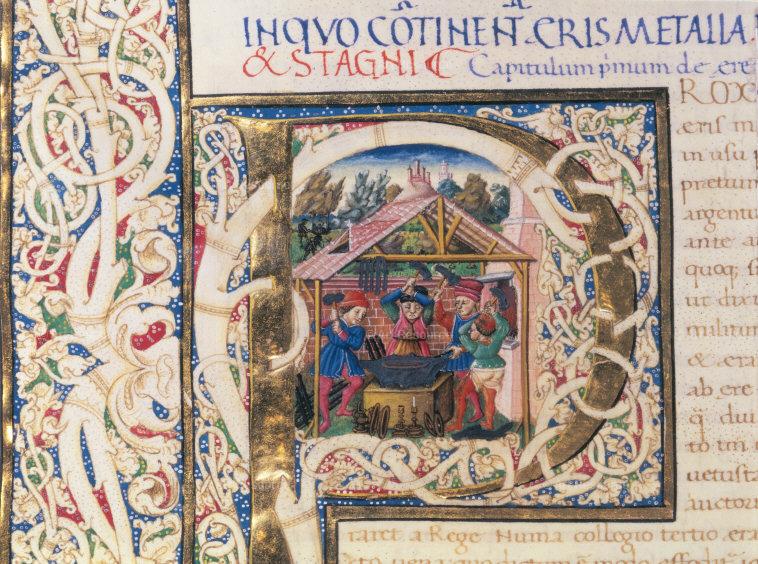 INQVO CŌTINENT̄. ERIS METALLA.
& STAGNI Capitulum p̄mum de ęre
P ROX
ęris m
in usu p
pretium
argentu
ante a
quoq; f
ut dix
militum
& ęra
ab ere
q̄ dui
to tm
uetusta
auctor
raret a Rege Numa collegio tertio ęra